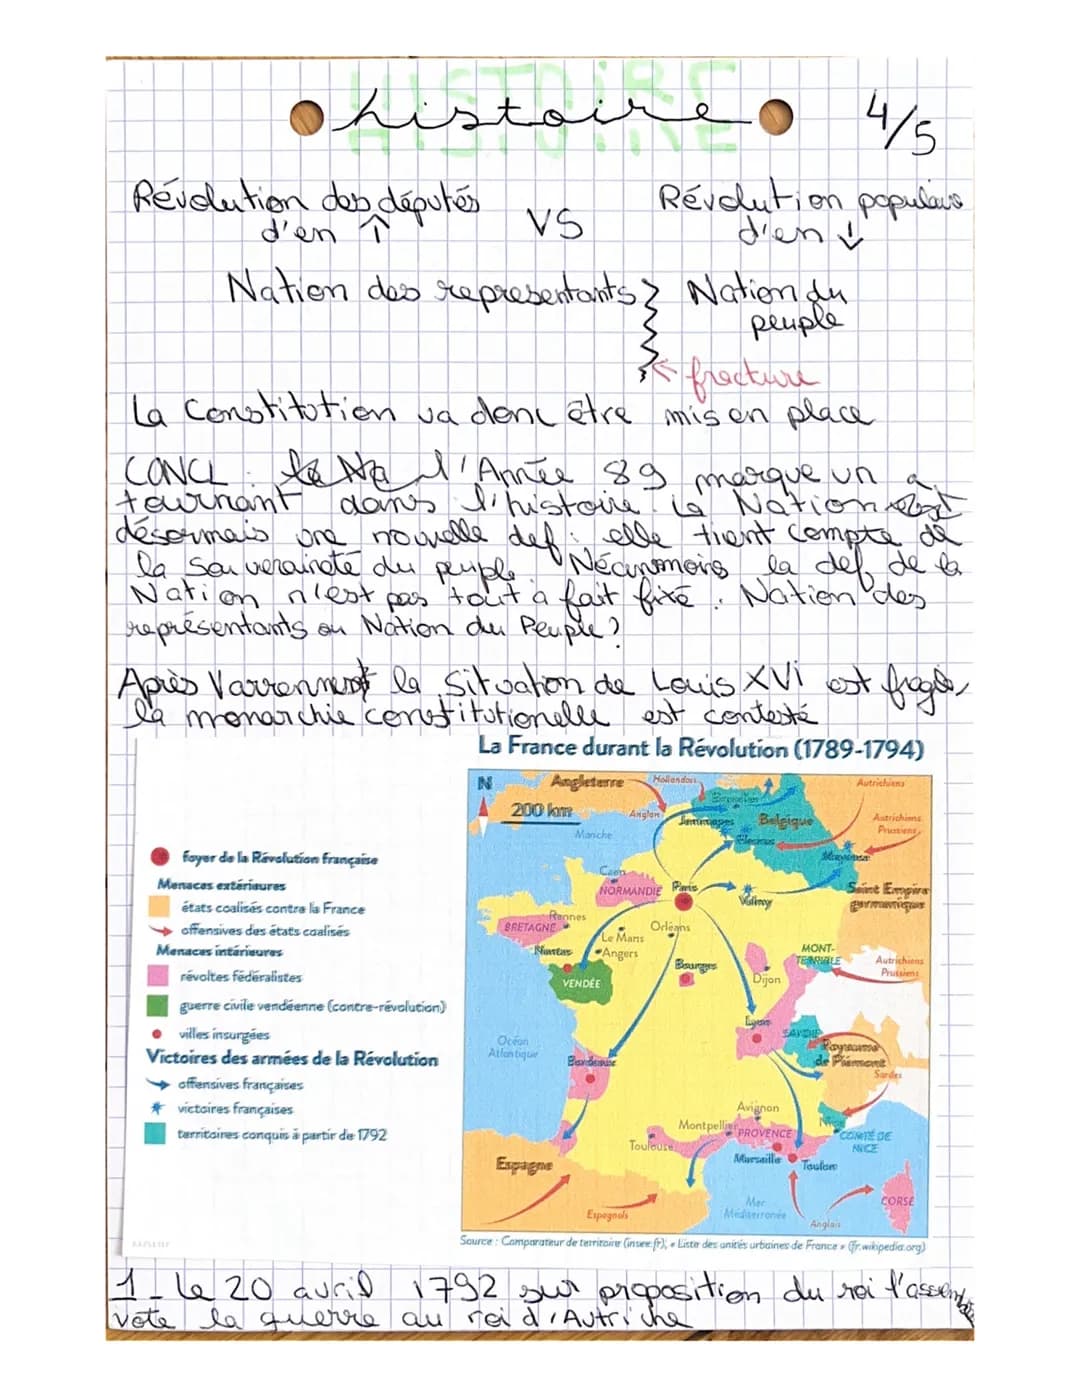 HISTOIRE
histoire
4/5
Révolution des députés
d'en ↑
VS
Révolution populaire
d'en ↓
Nation des representants
Nation du
peuple
← fracture
La Constitution va donc être mis en place
CONCL : l'Année 89 marque un
tournant dans l'histoire. la Nation
désormais une nouvelle def : elle tient compte de
la souveraineté du peuple. Néanmoins la def de la
Nation n'est pas tout à fait fixé. Nation des
représentants ou Nation du Peuple ?
Après la situation de Louis XVI est fragile,
la monarchie constitutionelle est contesté
La France durant la Révolution (1789-1794)
foyer de la Révolution française
Menaces extérieures
états coalisés contre la France
offensives des états coalisés
Menaces intérieures
révoltes fédéralistes
guerre civile vendéenne (contre-révolution)
villes insurgées
Victoires des armées de la Révolution
offensives françaises
victoires françaises
territoires conquis à partir de 1792
N
200 km
Angleterre
Hollandais
Autrichiens
Anglais
Bruxelles
Jemmapes
Belgique
Fleurus
Autrichiens
Prussiens
Manche
Mayence
Caen
NORMANDIE
Paris
Valmy
Saint Empire
germanique
Rennes
BRETAGNE
Le Mans
Orléans
Nantes
Angers
Bourges
MONT-
TERRIBLE
Autrichiens
Prussiens
VENDÉE
Dijon
Océan
Atlantique
Lyon
SAVOIE
Royaume
de Piémont
Sardes
Bordeaux
Avignon
Montpellier
PROVENCE
Nice
COMTÉ DE
NICE
Toulouse
Marseille
Toulon
Espagne
Espagnols
Mer
Méditerranée
Anglais
CORSE
Source : Comparateur de territoire (insee.fr), « Liste des unités urbaines de France » (fr.wikipedia.org)
1 - le 20 avril 1792 sur proposition du roi l'assemblée
vote la guerre au roi d'Autriche